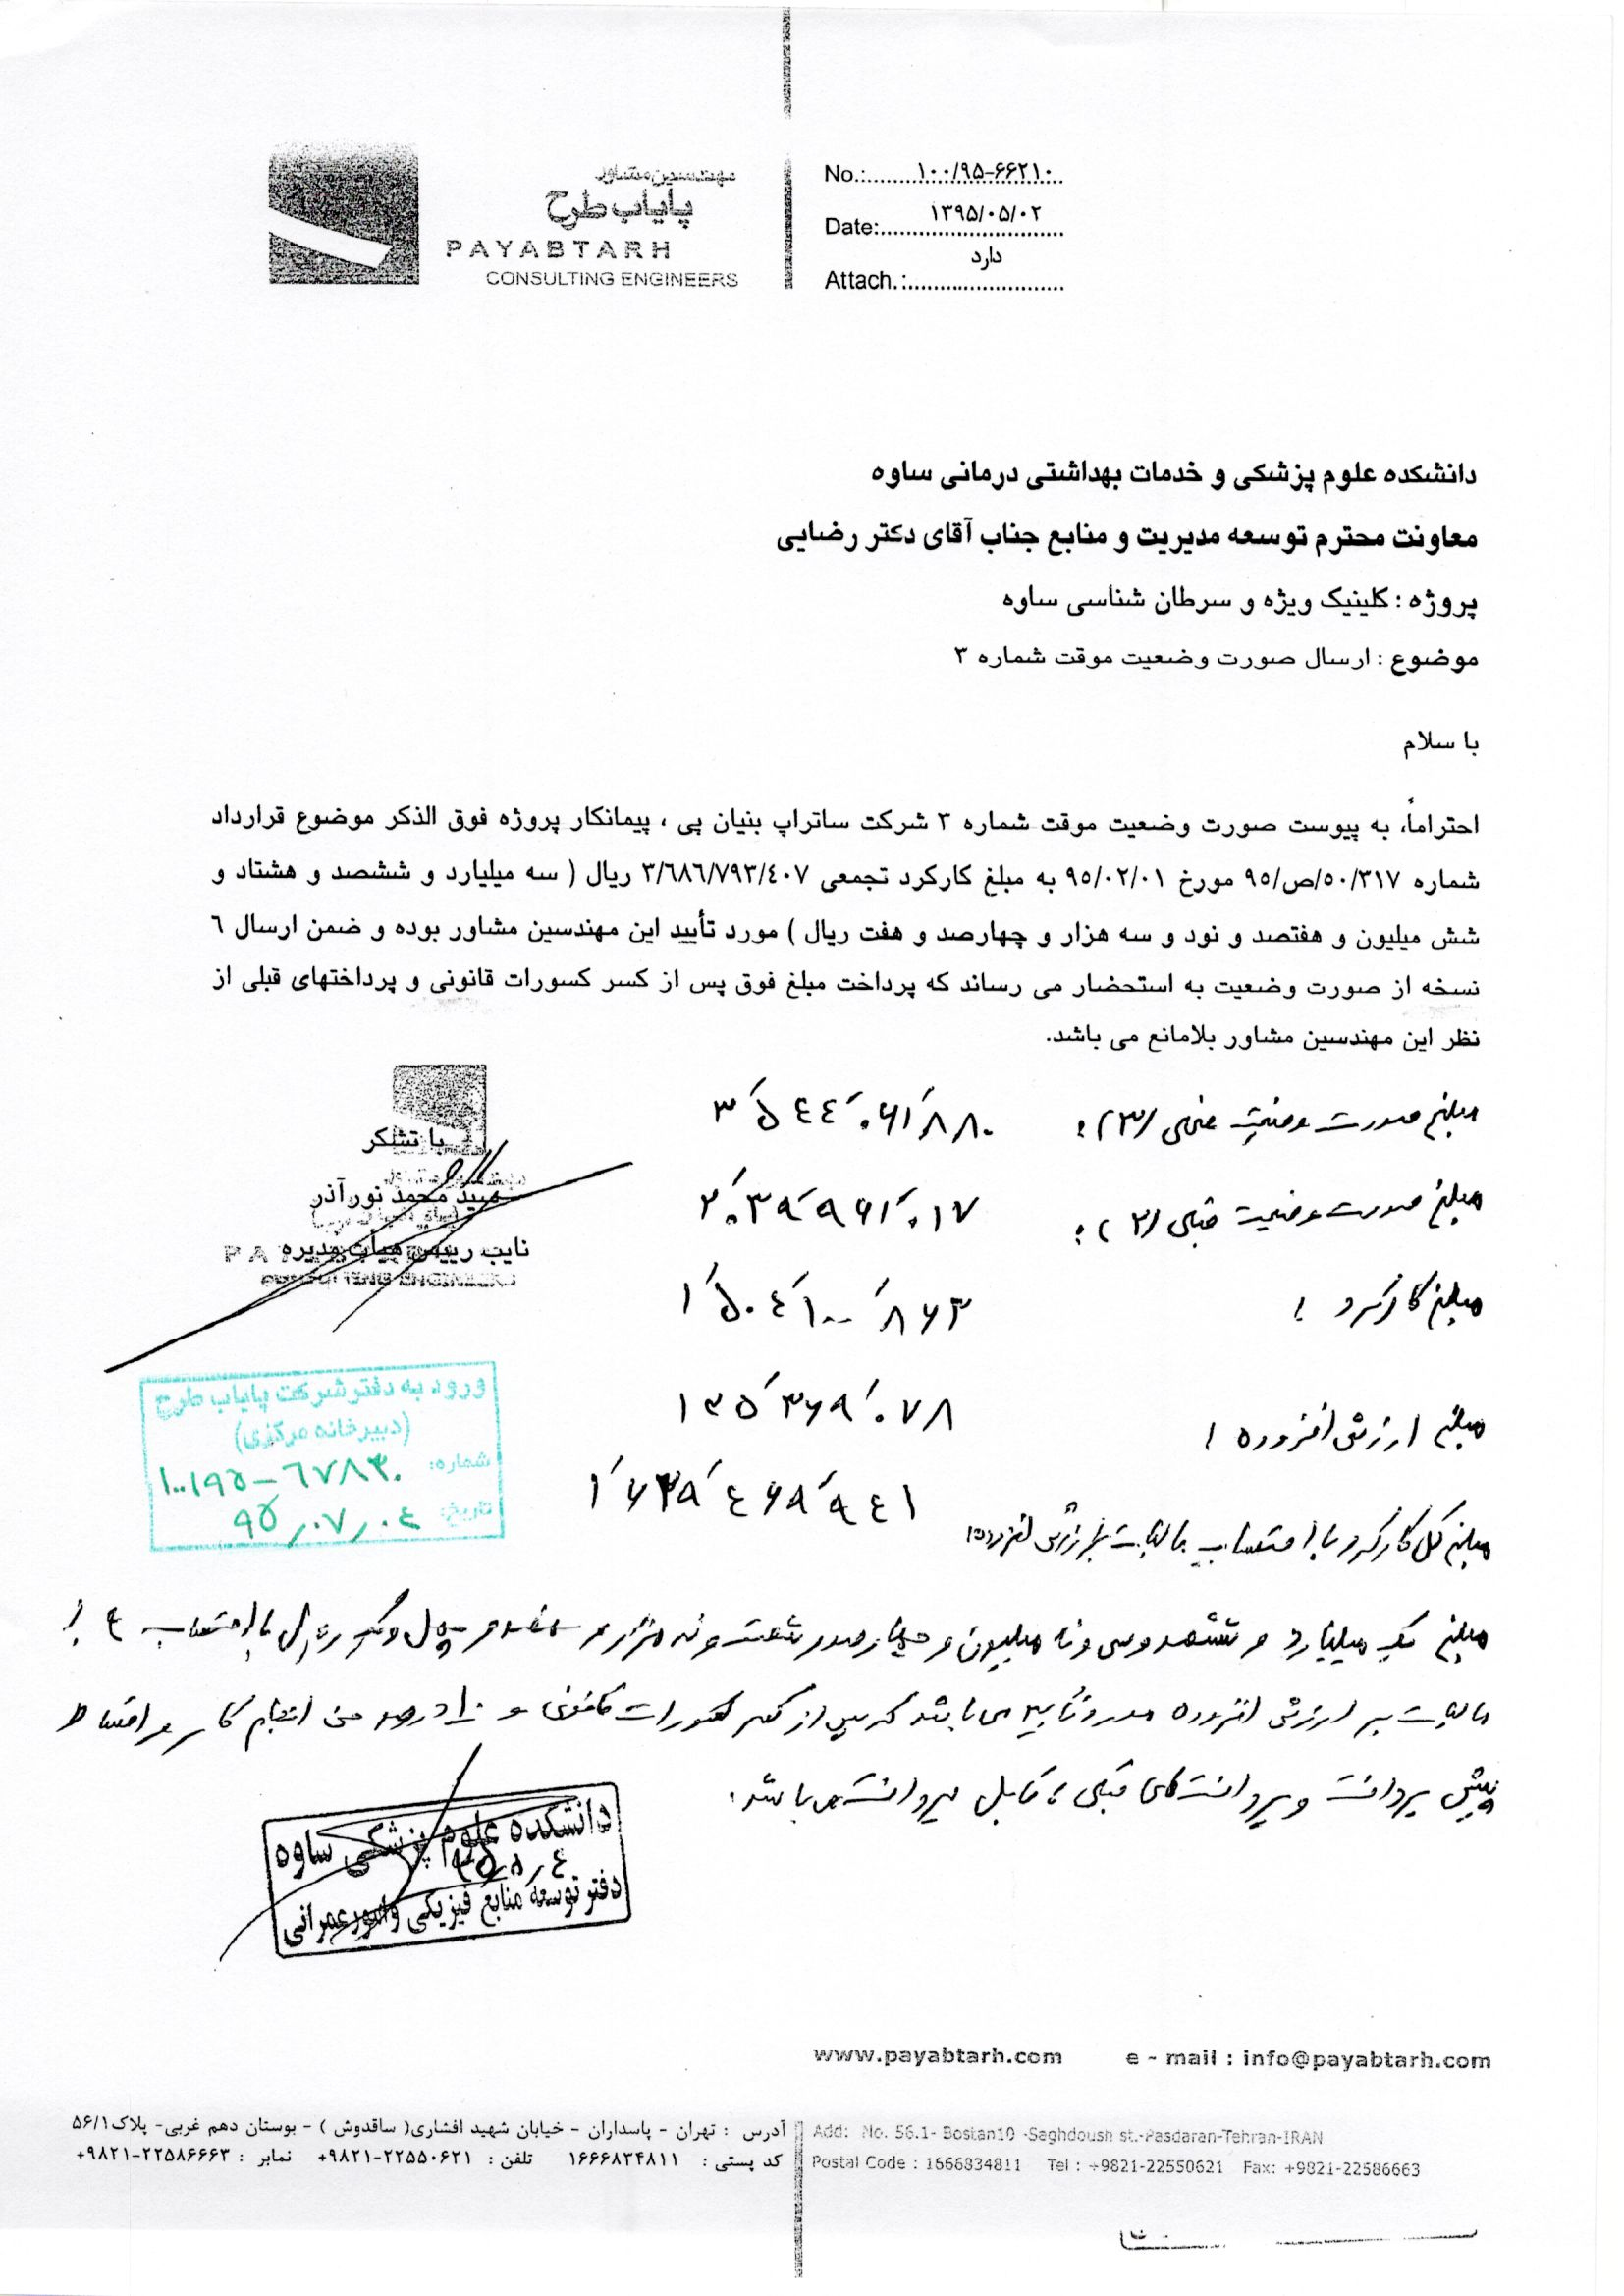 مهندسین مشاور
پایاب طرح
PAYABTARH
CONSULTING ENGINEERS
No.: ۱۰۰/۹۵-۶۶۲۱۰
Date: ۱۳۹۵/۰۵/۰۲
Attach.: دارد
دانشکده علوم پزشکی و خدمات بهداشتی درمانی ساوه
معاونت محترم توسعه مدیریت و منابع جناب آقای دکتر رضایی
پروژه : کلینیک ویژه و سرطان شناسی ساوه
موضوع : ارسال صورت وضعیت موقت شماره ۳
با سلام
احتراماً، به پیوست صورت وضعیت موقت شماره ۳ شرکت ساتراپ بنیان پی ، پیمانکار پروژه فوق الذکر موضوع قرارداد
شماره ۵۰/۳۱۷/ص/۹۵ مورخ ۹۵/۰۲/۰۱ به مبلغ کارکرد تجمعی ۳/۶۸۶/۷۹۳/۴۰۷ ریال ( سه میلیارد و ششصد و هشتاد و
شش میلیون و هفتصد و نود و سه هزار و چهارصد و هفت ریال ) مورد تأیید این مهندسین مشاور بوده و ضمن ارسال ۶
نسخه از صورت وضعیت به استحضار می رساند که پرداخت مبلغ فوق پس از کسر کسورات قانونی و پرداختهای قبلی از
نظر این مهندسین مشاور بلامانع می باشد.
با تشکر
سید محمد نورآذر
نایب رییس هیأت مدیره
PAYABTARH
CONSULTING ENGINEERS
مبلغ صورت وضعیت فعلی (۳) : ۳٬۵۴۴٬۰۶۱٬۸۸۰
مبلغ صورت وضعیت قبلی (۲) : ۲٬۰۳۹٬۹۶۱٬۰۱۷
مبلغ کارکرد : ۱٬۵۰۴٬۱۰۰٬۸۶۳
مبلغ ارزش افزوده : ۱۳۵٬۳۶۹٬۰۷۸
مبلغ کل کارکرد با احتساب مالیات بر ارزش افزوده: ۱٬۶۳۹٬۴۶۹٬۹۴۱
ورود به دفتر شرکت پایاب طرح
(دبیرخانه مرکزی)
شماره: ۱۰۰/۹۵-۶۷۸۳۰
تاریخ: ۹۵/۰۷/۰۴
مبلغ یک میلیارد و ششصد و سی و نه میلیون و چهارصد و شصت و نه هزار و نهصد و چهل و یک ریال با احتساب ۹٪
مالیات بر ارزش افزوده مورد تأیید می باشد که پس از کسر کسورات قانونی و ۱۰ درصد حسن انجام کار و اقساط
پیش پرداخت و پرداخت های قبلی ، قابل پرداخت می باشد.
دانشکده علوم پزشکی ساوه
دفتر توسعه منابع فیزیکی و امور عمرانی
www.payabtarh.com e - mail : info@payabtarh.com
آدرس : تهران - پاسداران - خیابان شهید افشاری( ساقدوش ) - بوستان دهم غربی- پلاک ۵۶/۱
کد پستی : ۱۶۶۶۸۳۴۸۱۱ تلفن : ۲۲۵۵۰۶۲۱-۹۸۲۱+ نمابر : ۲۲۵۸۶۶۶۳-۹۸۲۱+
Add: No. 56.1- Bostan10 -Saghdoush st.-Pasdaran-Tehran-IRAN
Postal Code : 1666834811 Tel : +9821-22550621 Fax: +9821-22586663